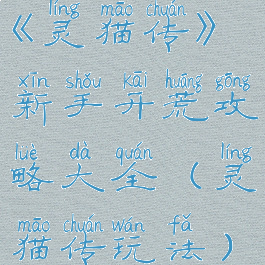 líng māo chuán
《灵猫传》
xīn shǒu kāi huāng gōng
新手开荒攻
lüè dà quán líng
略大全（灵
māo chuán wán fǎ
猫传玩法）